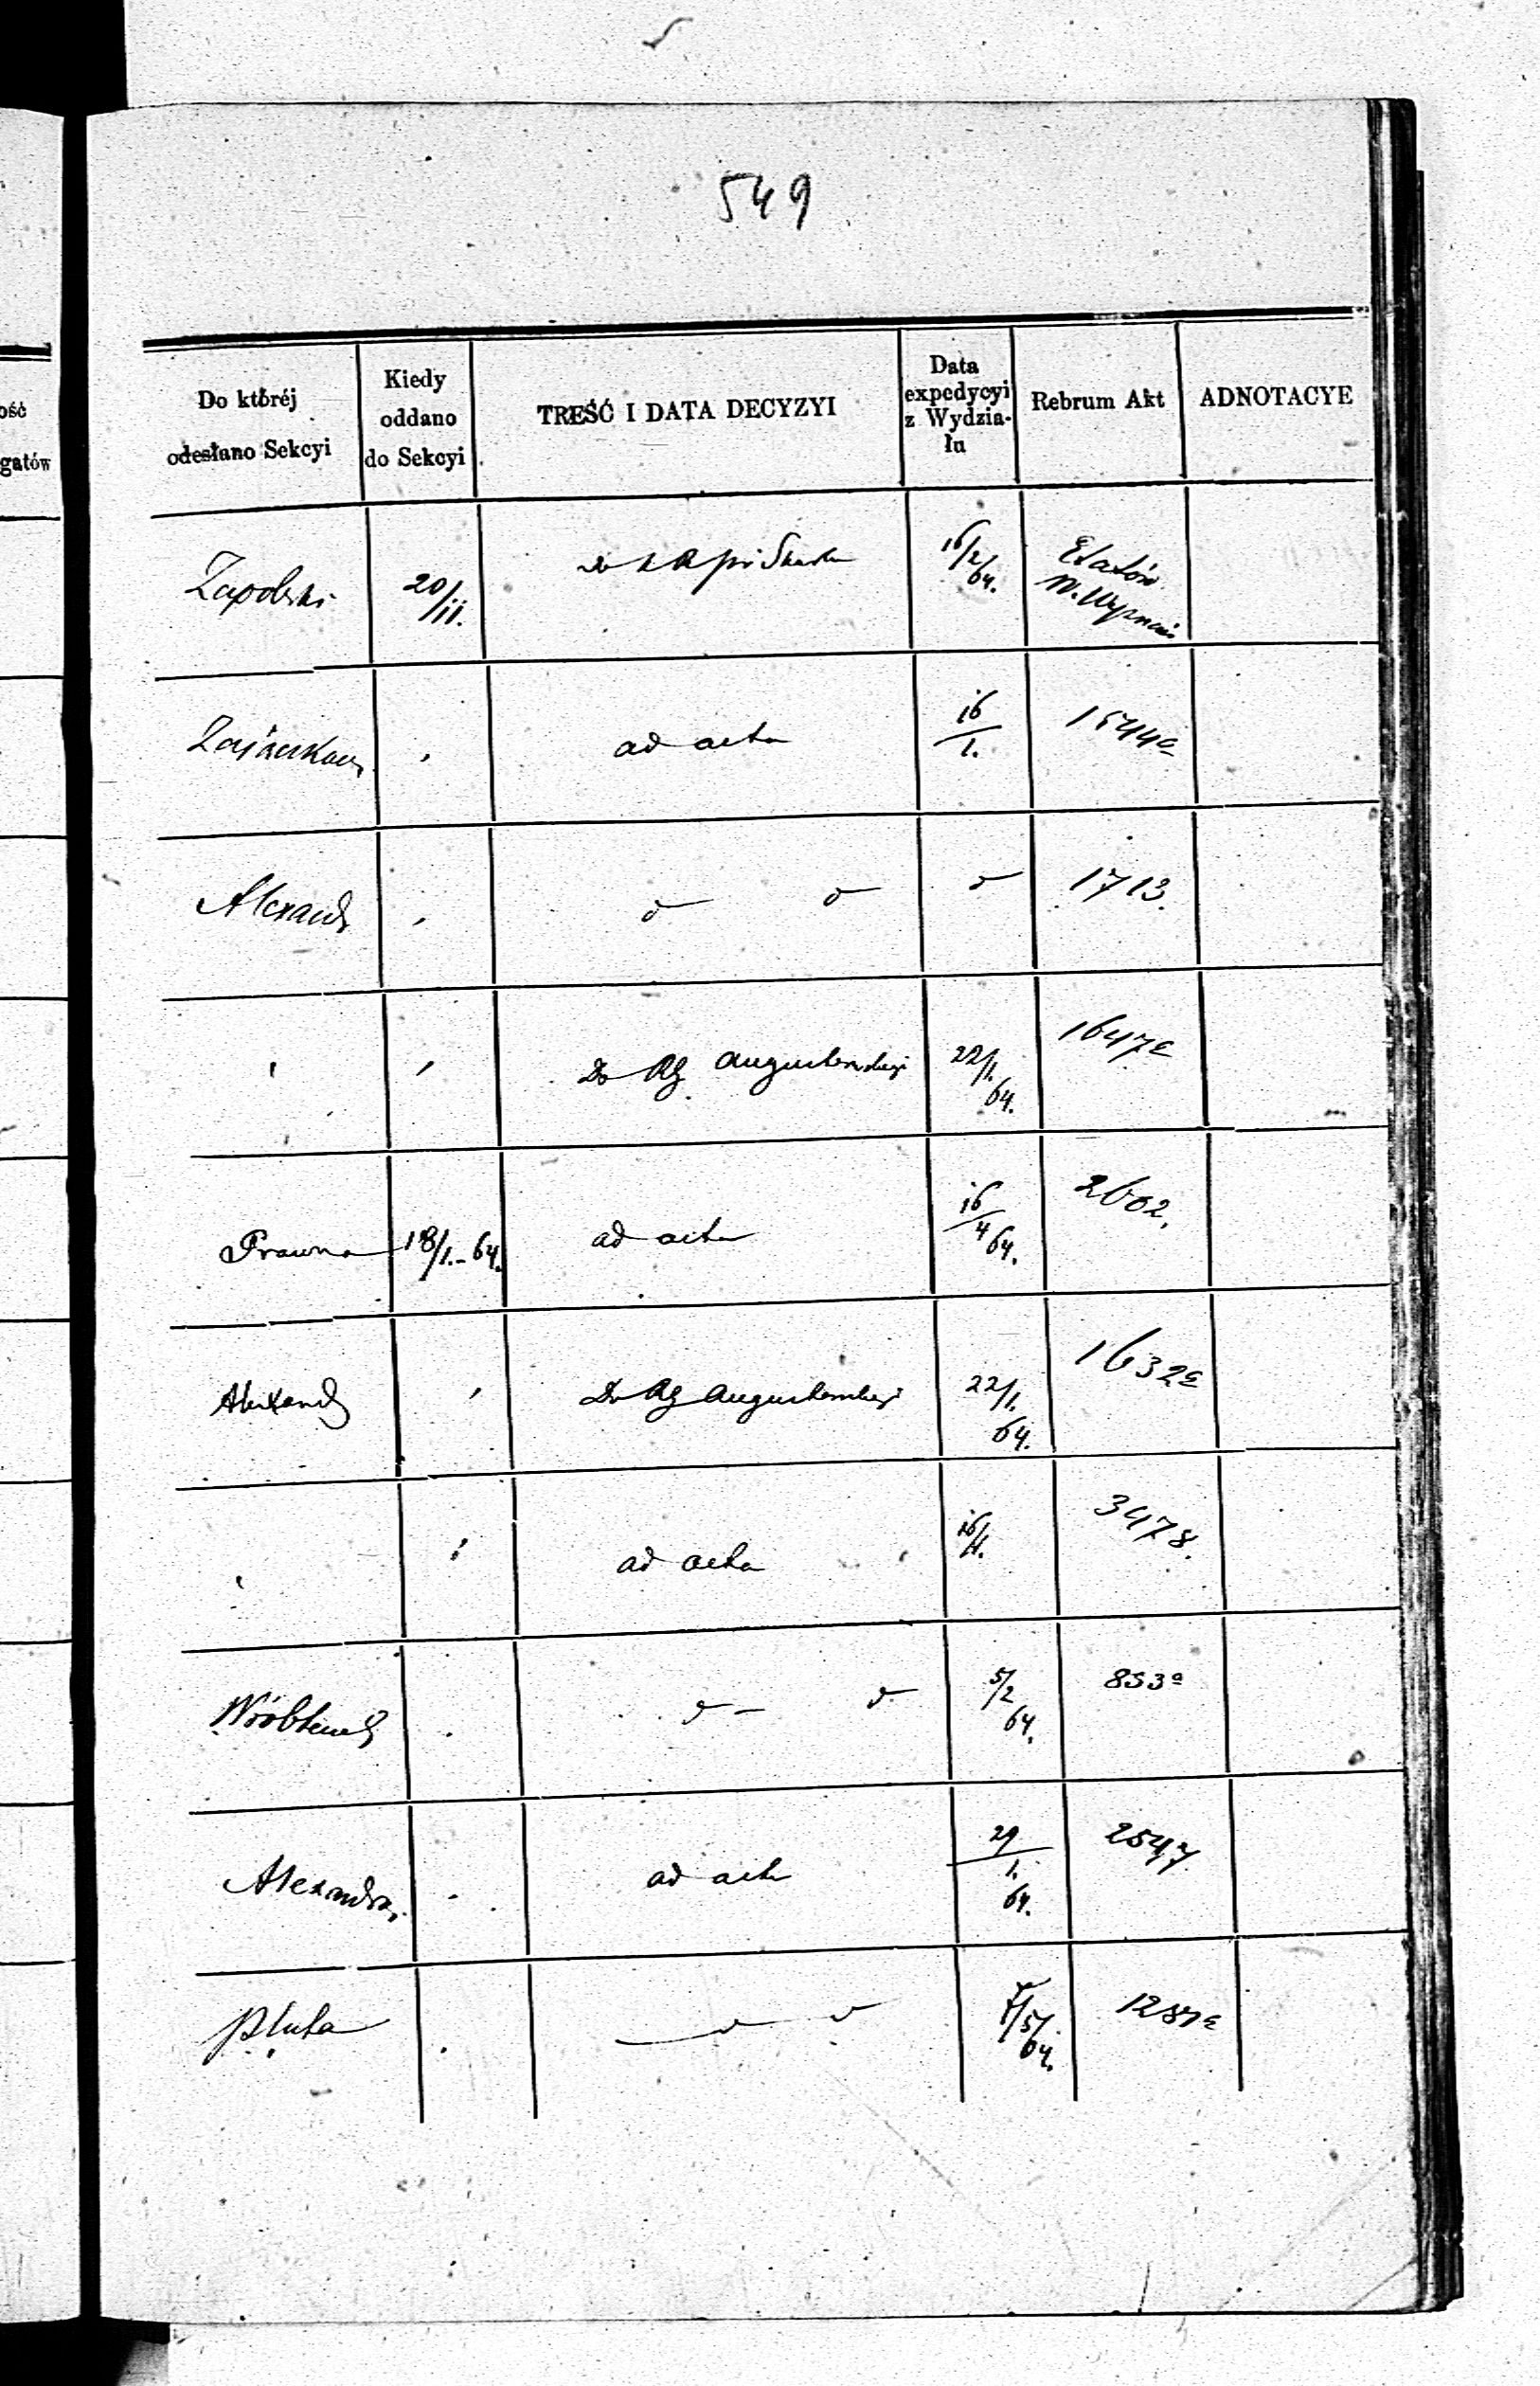 549
ość
gatów
Do któréj
odesłano Sekcyi
Kiedy
oddano
do Sekcyi
TREŚĆ I DATA DECYZYI
Data
expedycyi
z Wydzia-
łu
Rebrum Akt
ADNOTACYE
Zapolski 20/11. 16/2 64. Etatów
ad acta 16/1. 1544a
Alexand 1713.
Do RG Augustowskiej 22/1. 64. 1647a
Prawna 18/1.-64. ad acta 16/4 64. 2602.
Alexand Do RG Augustowskiej 22/1. 64. 1632a
ad acta 3478.
Wróblewsk 5/2 64. 853a
Alexandr. ad acta 29/1. 64. 2547
Pluta 64.